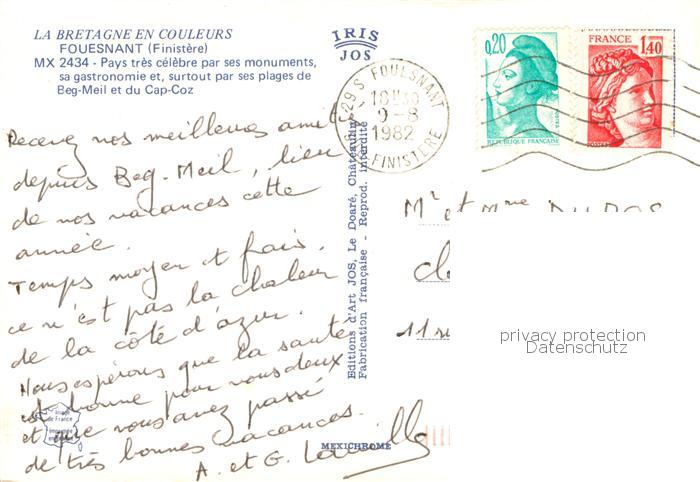 LA BRETAGNE EN COULEURS
FOUESNANT (Finistère)
MX 2434 - Pays très célèbre par ses monuments,
sa gastronomie et, surtout par ses plages de
Beg-Meil et du Cap-Coz
IRIS
JOS
29 S. FOUESNANT
18H30
9-8
1982
FINISTERE
0,20
REPUBLIQUE FRANÇAISE
FRANCE
1,40
Recevez nos meilleures amitiés
depuis Beg-Meil, lieu
de nos vacances cette
année.
Temps moyen et frais,
ce n'est pas la chaleur
de la côte d'azur.
Nous espérons que la santé
est bonne pour vous deux
et que vous avez passé
de très bonnes vacances.
A. et G.
Editions d'Art JOS, Le Doaré, Châteaulin
Fabrication française - Reprod. interdite
Image
de France
Imprimée
en
MEXICHROME
Mr et Mme
11
privacy protection
Datenschutz